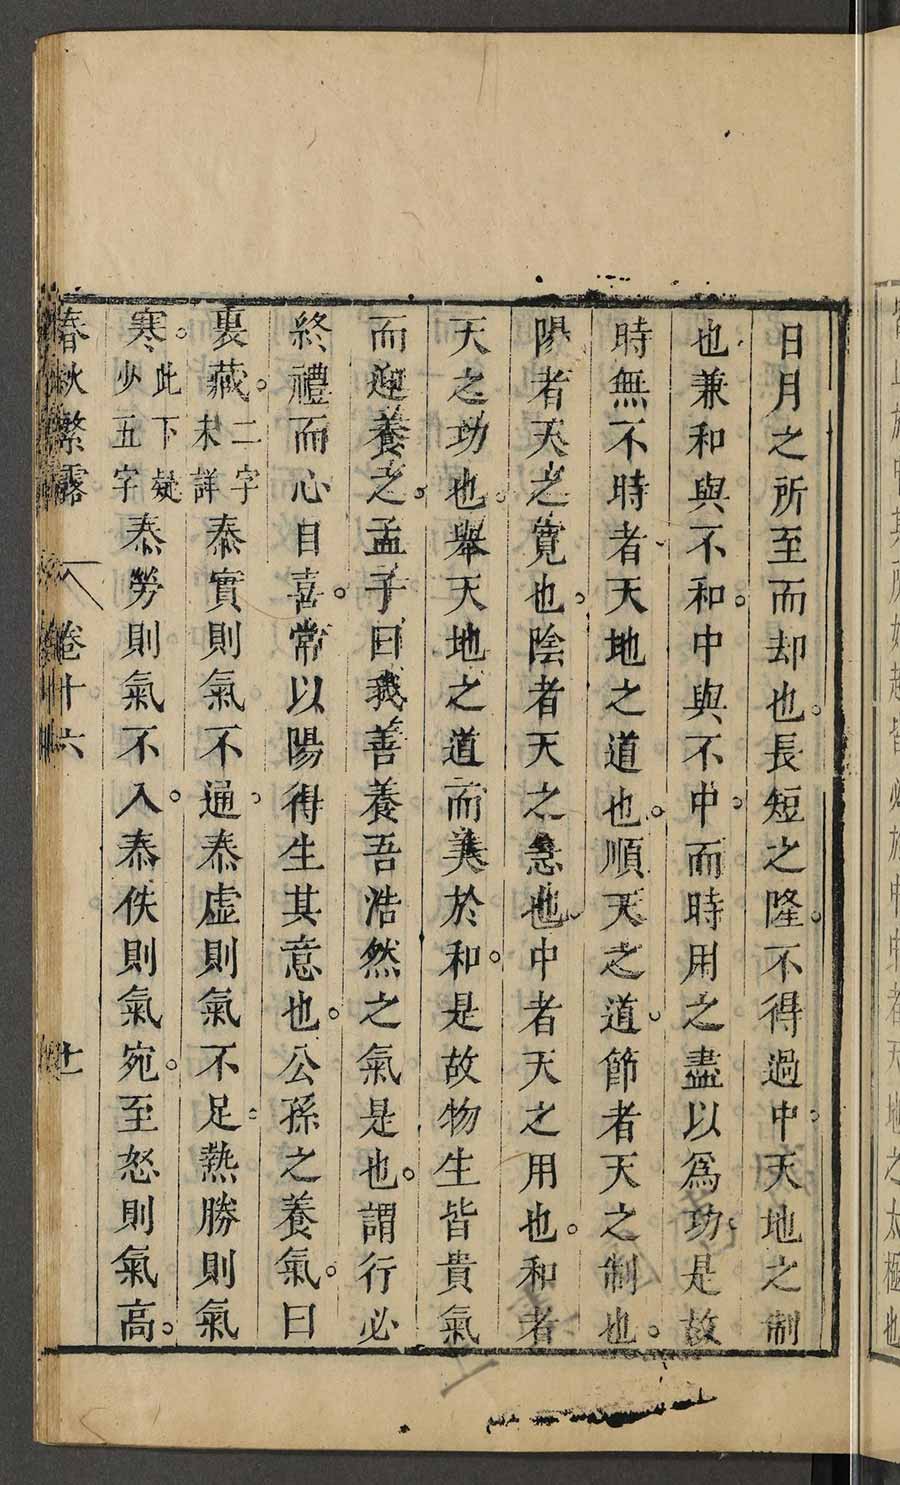 日月之所至而却也。長短之隆。不得過中。天地之制
也。兼和與不和。中與不中。而時用之盡以爲功。是故
時無不時者。天地之道也。順天之道。節者天之制也。
陽者天之寬也。陰者天之急也。中者天之用也。和者
天之功也。舉天地之道而美於和。是故物生皆貴氣
而迎養之。孟子曰我善養吾浩然之氣是也。謂行必
終禮而心目喜。常以陽得生其意也。公孫之養氣。曰
裏藏。二字未詳泰實則氣不通。泰虛則氣不足。熱勝則氣
寒。此下疑少五字泰勞則氣不入。泰佚則氣宛。至怒則氣高。
春秋繁露 卷十六 十一